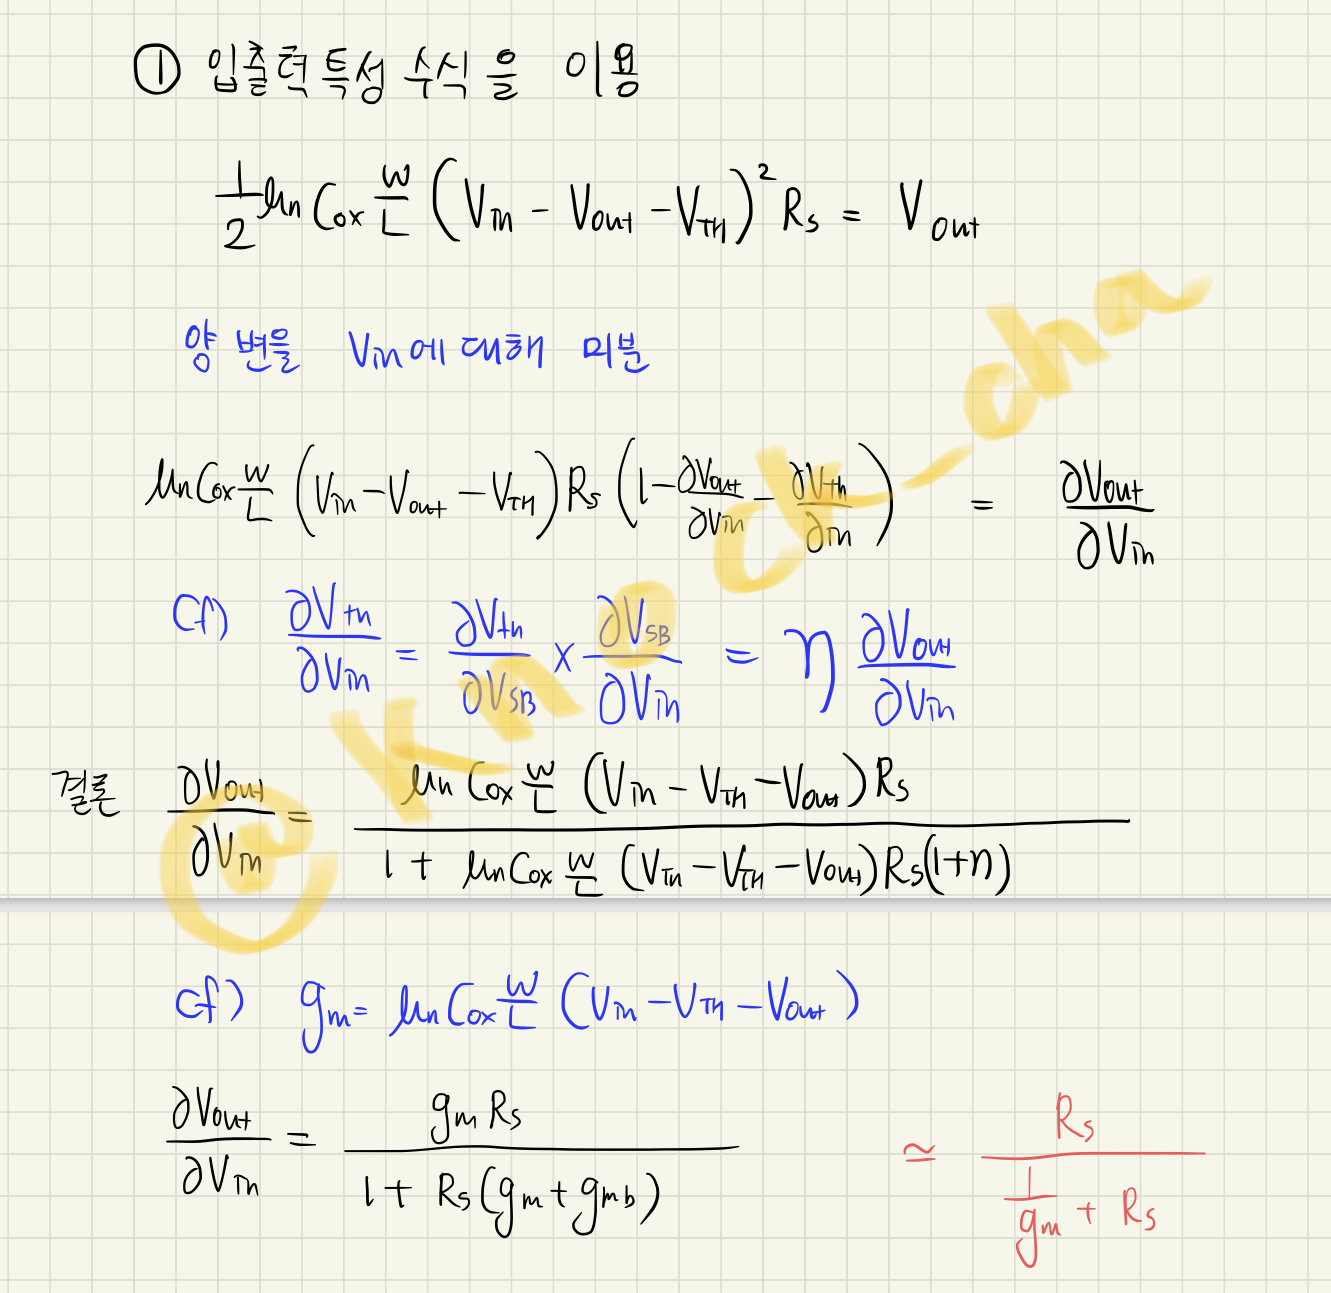 ① 입출력특성 수식을 이용
1/2 μn Cox W/L (Vin - Vout - VTH)² Rs = Vout
양 변을 Vin에 대해 미분
μn Cox W/L (Vin - Vout - VTH) Rs (1 - ∂Vout/∂Vin - ∂Vth/∂in) = ∂Vout/∂Vin
Cf) ∂Vth/∂Vin = ∂Vth/∂VSB × ∂VSB/∂Vin = η ∂Vout/∂Vin
결론 ∂Vout/∂Vin = μn Cox W/L (Vin - VTH - Vout) Rs / 1 + μn Cox W/L (Vin - VTH - Vout) Rs (1+η)
cf) gm = μn Cox W/L (Vin - VTH - Vout)
∂Vout/∂Vin = gm Rs / 1 + Rs (gm + gmb) ≃ Rs / 1/gm + Rs
© knock_cha